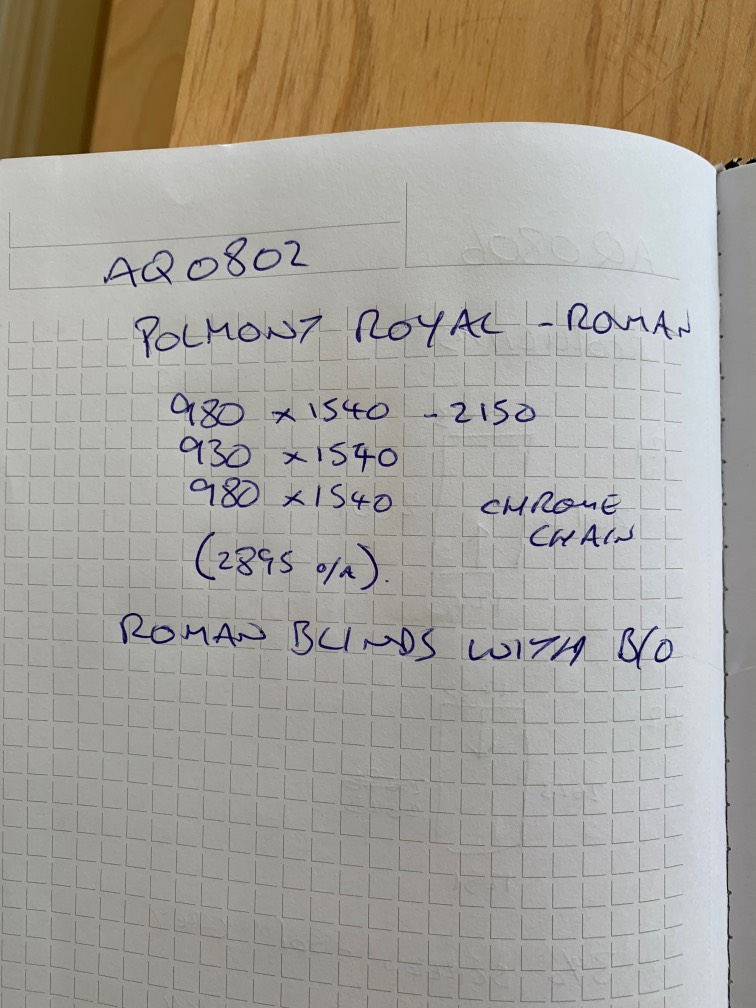 AQ0802
POLMONT ROYAL - ROMAN
980 x 1540 - 2150
930 x 1540
980 x 1540
CHROME
CHAIN
(2895 o/A).
ROMAN BLINDS WITH B/O